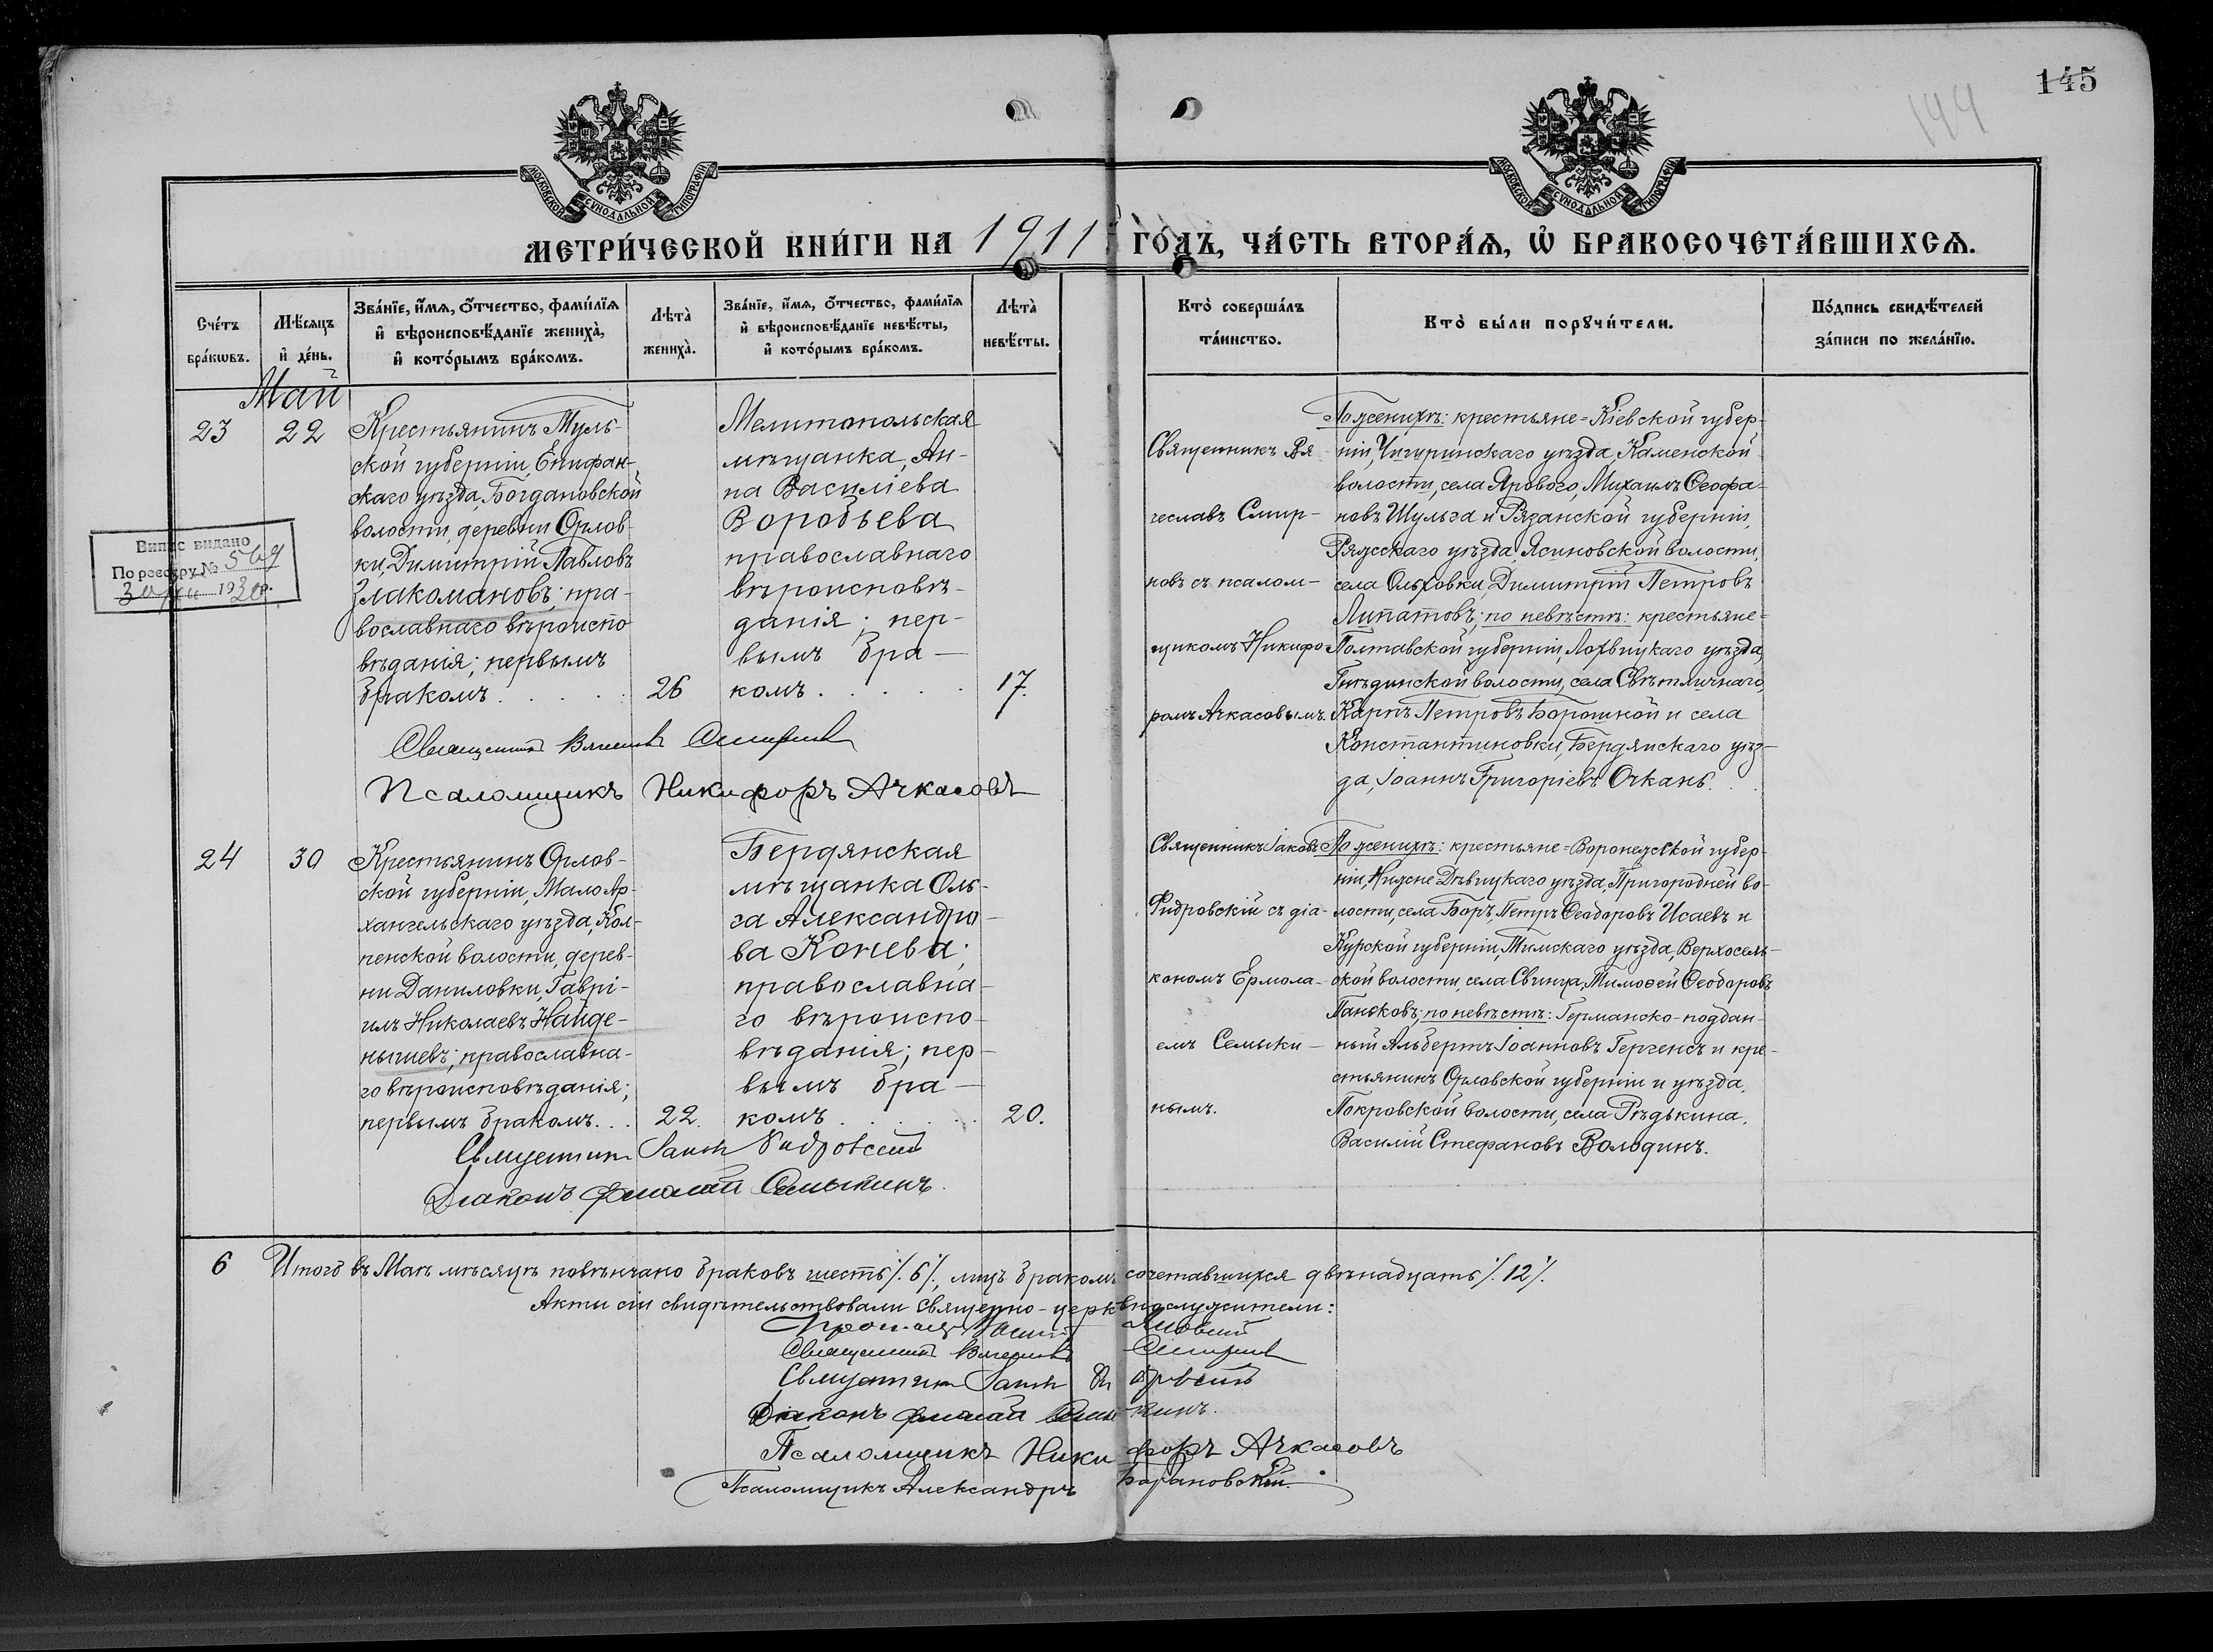 145
144
МОСКОВСКОЙ СѴНОДАЛЬНОЙ ТИПОГРАФІИ
МОСКОВСКОЙ СѴНОДАЛЬНОЙ ТИПОГРАФІИ
МЕТРИ́ЧЕСКОЙ КНИ́ГИ НА 1911 ГО́ДЪ, ЧА́СТЬ ВТОРА́Ѧ, Ѡ҆ БРАКОСОЧЕТА́ВШИХСѦ.
Сче́тъ
бра́кѡвъ.
Мѣ́сѧцъ
и҆ де́нь.
Зва́нїе, и҆́мѧ, ѻ҆́тчество, фами́лїѧ
и҆ вѣроисповѣ́данїе жениха̀,
и҆ кото́рымъ бра́комъ.
Лѣта̀
жениха̀.
Зва́нїе, и҆́мѧ, ѻ҆́тчество, фами́лїѧ
и҆ вѣроисповѣ́данїе невѣ́сты,
и҆ кото́рымъ бра́комъ.
Лѣта̀
невѣ́сты.
Кто̀ соверша́лъ
та́инство.
Кто̀ бы́ли порꙋчи́тели.
По́дпись свидѣ́телей
за́писи по жела́нїю.
Май
23
22
Крестьянинъ Туль-
ской губерніи, Епифан-
скаго уѣзда, Богдановской
волости, деревни Орлов-
ки, Димитрій Павловъ
Злакомановъ; пра-
вославнаго вѣроиспо
вѣданія; первымъ
бракомъ . . . . .
26
Мелитопольская
мѣщанка, Ан-
на Василіева
Воробьева
православнаго
вѣроисповѣ-
данія; пер-
вымъ бра-
комъ . . . . .
17.
Випис видано
По реєстру № 569
193 р.
Священникъ Вя-
чеславъ Смир-
новъ съ псалом-
щикомъ Никифо-
ромъ Ачкасовымъ.
По женихѣ: крестьяне=Кіевской губер-
ніи, Чигиринскаго уѣзда, Каменской
волости, села Ярового, Михаилъ Ѳеофа-
новъ Шульга и Рязанской губерніи,
Ряжскаго уѣзда, Ясиновской волости,
села Ольховки, Димитрій Петровъ
Липатовъ; по невѣстѣ: крестьяне=
Полтавской губерніи, Лохвицкаго уѣзда,
Гнѣдинской волости, села Свѣтличнаго,
Карпъ Петровъ Борошной и села
Константиновки, Бердянскаго уѣз-
да, Іоаннъ Григоріевъ Очкань.
Священникъ Вячеславъ Смирновъ
Псаломщикъ Никифоръ Ачкасовъ
24
30
Крестьянинъ Орлов-
ской губерніи, Мало Ар-
хангельскаго уѣзда, Кол-
пенской волости, дерев-
ни Даниловки, Гаврі-
илъ Николаевъ Найде-
нышевъ; православна-
го вѣроисповѣданія;
первымъ бракомъ . . .
22.
Бердянская
мѣщанка Оль-
га Александро-
ва Конева;
православна-
го вѣроиспо-
вѣданія; пер-
вымъ бра-
комъ . . . . . .
20.
Священникъ Іаковъ
Фидровскій съ діа-
кономъ Ермола-
емъ Семыки-
нымъ.
По женихѣ: крестьяне=Воронежской губер-
ніи, Нижне Дѣвицкаго уѣзда, Пригородней во-
лости, села Боръ, Петръ Ѳеодоровъ Исаевъ и
Курской губерніи, Тимскаго уѣзда, Верхосель-
ской волости, села Свинца, Тимоѳей Ѳеодоровъ
Паньковъ; по невѣстѣ: Германско-поддан-
ный Альбертъ Іоанновъ Гергенсъ и кре-
стьянинъ Орловской губерніи и уѣзда,
Покровской волости, села Рѣдькина,
Василій Стефановъ Володинъ.
Священникъ Іаковъ Фидровскій
Діаконъ Ермолай Семыкинъ.
6
Итого въ Маѣ мѣсяцѣ повѣнчано браковъ шесть ./. 6 ./., лицъ бракомъ сочетавшихся двѣнадцать ./. 12 ./.
Акты сіи свидѣтельствовали священно-церковнослужители:
Священникъ Вячеславъ Смирновъ
Священникъ Іаковъ Фидровскій
Діаконъ Ермолай Семыкинъ.
Псаломщикъ Никифоръ Ачкасовъ
Псаломщикъ Александръ Барановскій.